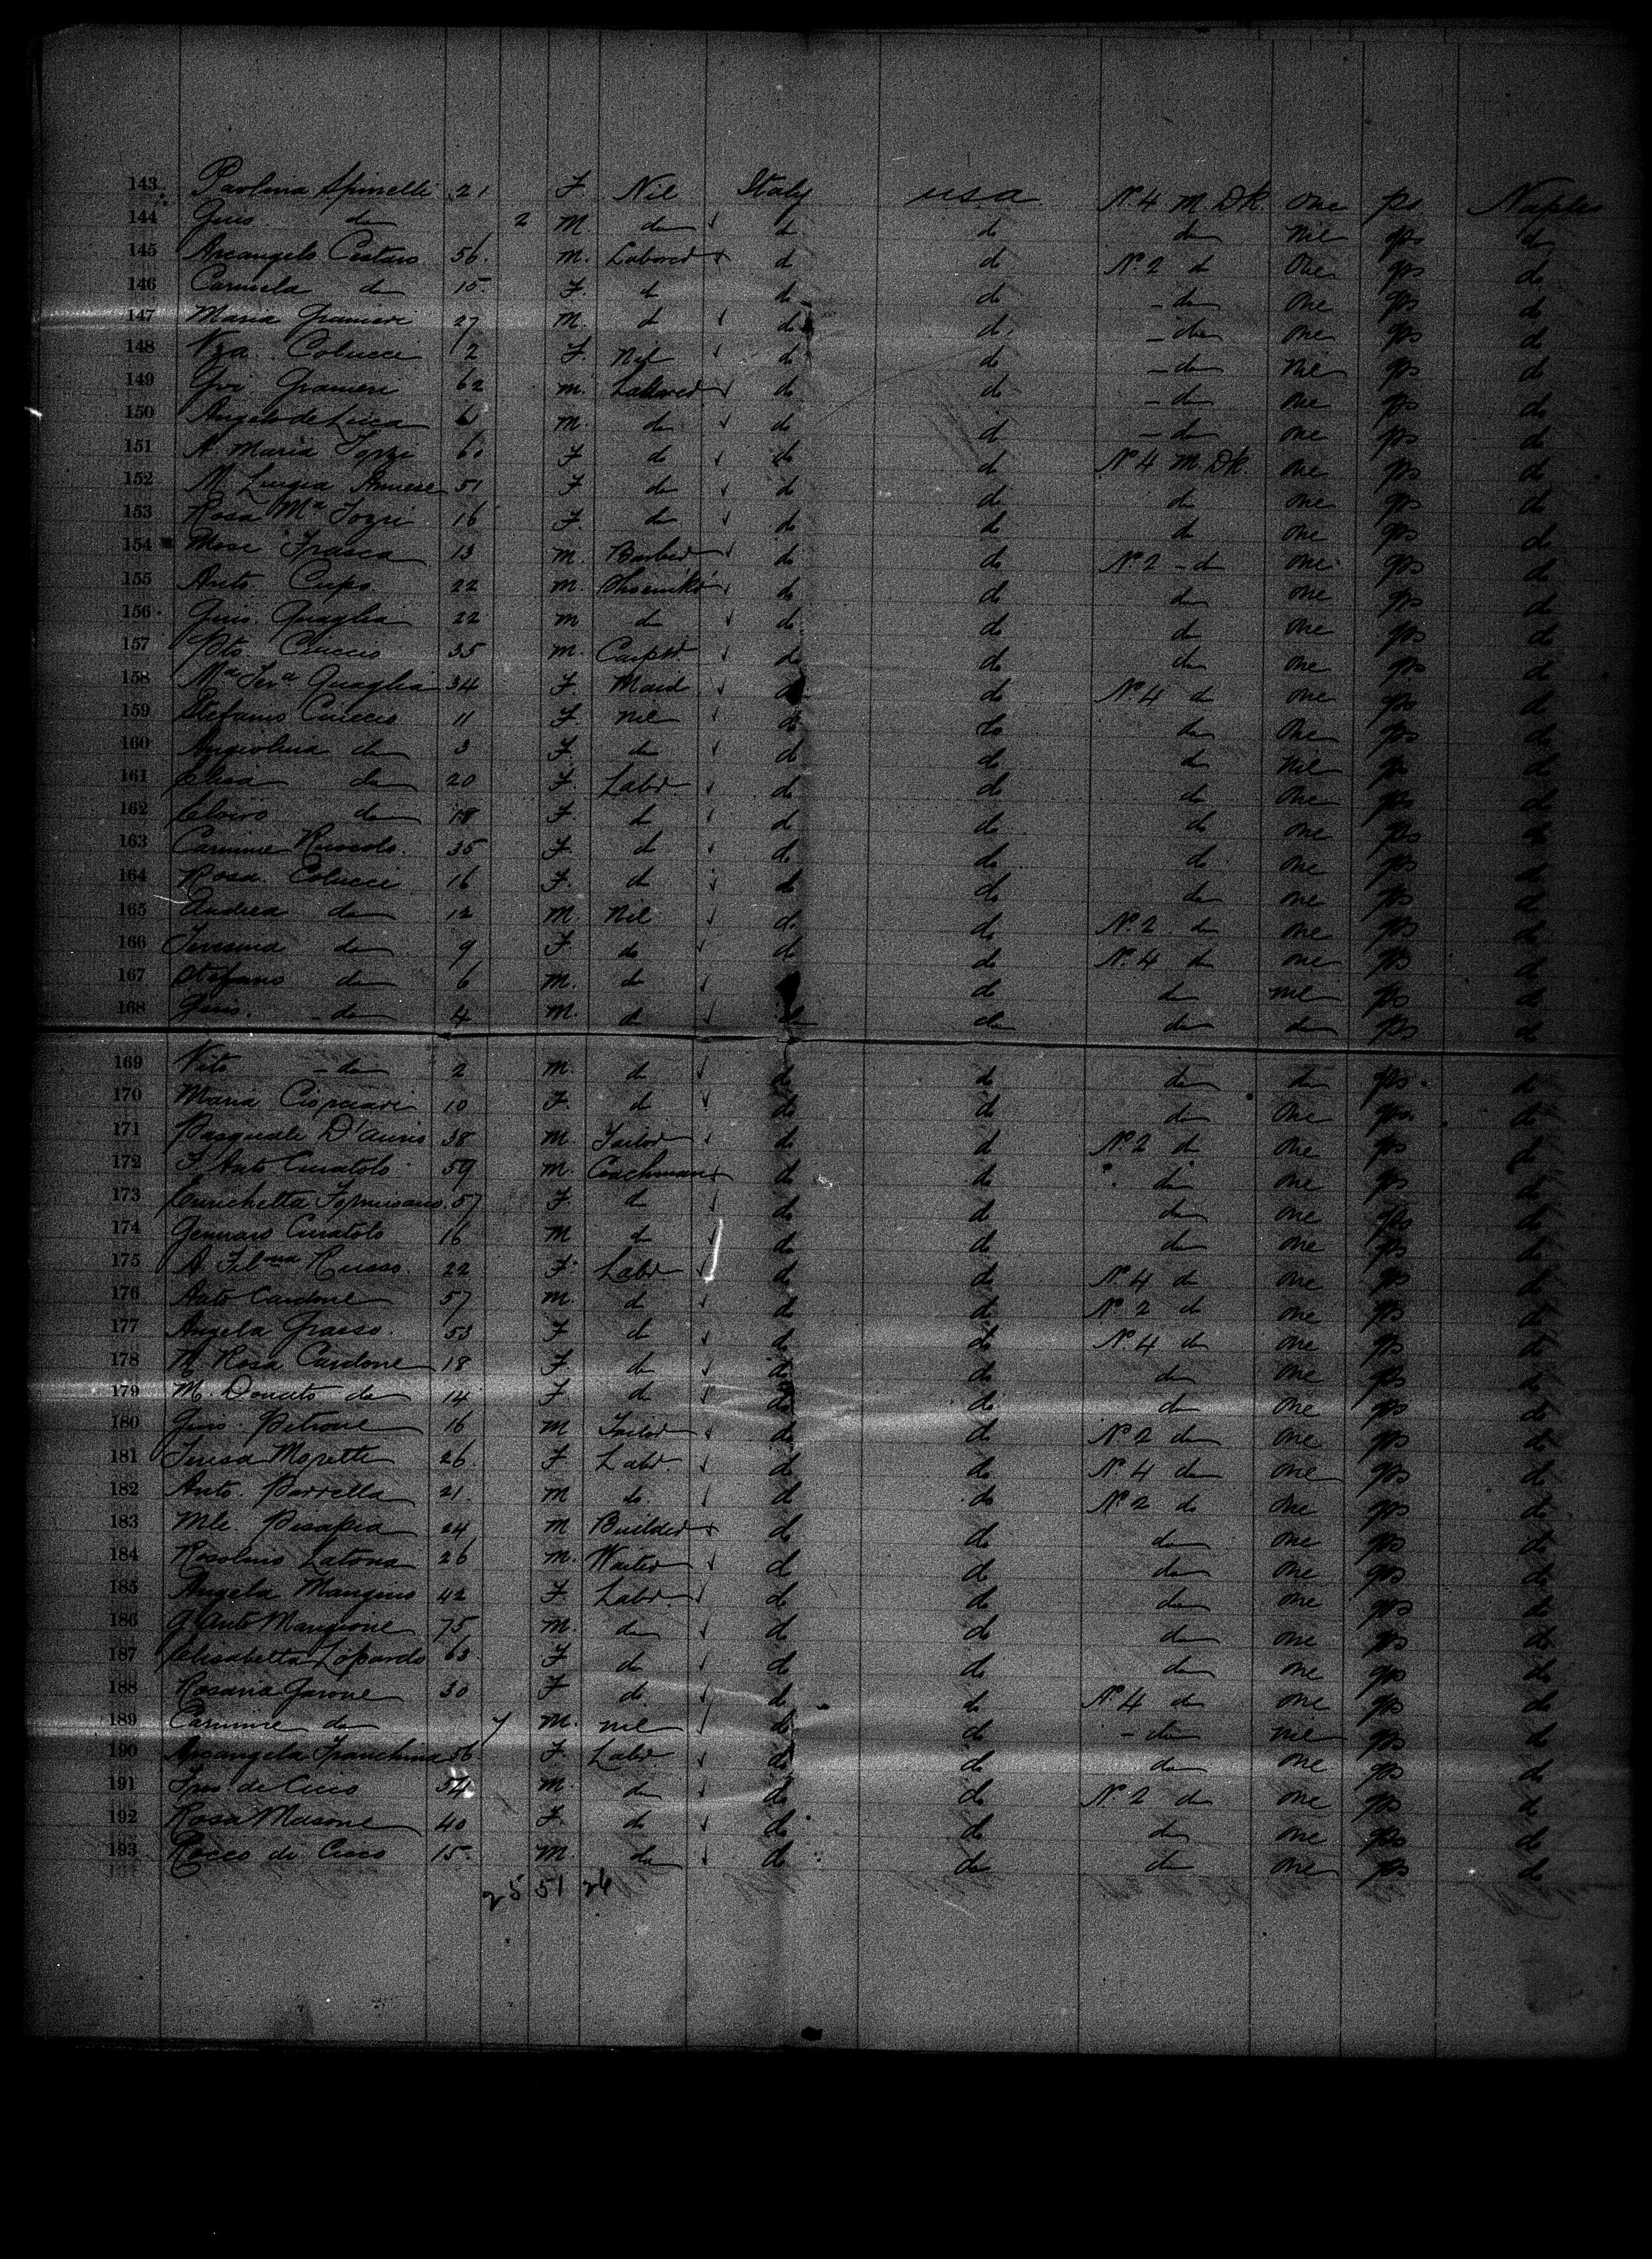 143 Paolina Spinelli 21 F. Nil Italy USA No. 4 M. Dk. One ps Naples
144 Gius. do 2 M. do do do do Nil ps do
145 Arcangelo Cestaro 56. M. Laborer do do No. 2 do One ps do
146 Carmela do 15. F. do do do - do One ps do
147 Maria Granieri 27 M. do do do - do one ps do
148 Nza. Colucci 2 F. Nil do do - do Nil ps do
149 Gvi Granieri 62 M. Laborer do do - do one ps do
150 Angelo de Luca M. do do do - do one ps do
151 A. Maria 60 F do do do No. 4 M. Dk. one ps do
152 M. Luigia 51 F do do do do one ps do
153 Rosa Ma Tozzi 16 F. do do do do one ps do
154 Mose Frasca 13 M. Barber do do No. 2 - do one ps do
155 Anto Cupo 22 M. Shoemkr do do do one ps do
156 Gius. Quaglia 22 M do do do do one ps do
157 Pto. Ciuccio 35 M. Carptr do do do one ps do
158 Ma Tera Quaglia 34 F. Maid do do No. 4 do one ps do
159 Stefano Ciuccio 11 F. nil do do do One ps do
160 Angiolina do 3 F. do do do do Nil ps do
161 do 20 F. Labr do do do One ps do
162 do 18 F. do do do do one ps do
163 Carmine 35 F. do do do do one ps do
164 Rosa Colucci 16 F. do do do do one ps do
165 Andrea do 12 M. Nil do do No. 2 do one ps do
166 Teresina do 9 F. do do do No. 4 do one ps do
167 Stefano do 6 M. do do do nil ps do
168 Gius. - do 4 M. do do do do do ps do
169 Vito - do 2 M. do do do do do ps do
170 Maria 10 F. do do do do One ps do
171 Pasquale D'Auria 38 M. Tailor do do No. 2 do One ps do
172 F. Anto Curatolo 59 M. Coachman do do do one ps do
173 Enrichetta 57 F. do do do do one ps do
174 Gennaro Curatolo 16 M do do do do one ps do
175 A. Filma Russo 22 F. Labr do do No. 4 do one ps do
176 Anto Cardone 57 M. do do do No. 2 do one ps do
177 Angela Grasso. 53 F. do do do No. 4 do one ps do
178 M. Rosa Cardone 18 F. do do do do one ps do
179 M. Donato do 14 F. do do do do one ps do
180 Gius. Petrone 16 M Tailor do do No. 2 do one ps do
181 Teresa Moretti 26. F Labr. do do No. 4 do one ps do
182 Anto. Parrella 21. M do. do do No. 2 do one ps do
183 Mle. Pisapia 24 M Builder do do do one ps do
184 Rosolino Latona 26 M. Waiter do do do one ps do
185 Angela Mangino 42 F. Labr. do do do one ps do
186 G. Anto Mangione 75 M. do do do do one ps do
187 Elisabetta Lopardo 63 F do do do do one ps do
188 Rosaria Garone 30 F do. do do No. 4 do one ps do
189 Carmine do 7 M. nil do do - do nil ps do
190 Arcangela Franchina 56 F. Labr. do do do one ps do
191 de Cicco 54 M. do do do No. 2 do one ps do
192 Rosa Masone 40 F. do do do do one ps do
193 Rocco de Cicco 15. M. do do do do one ps do
25 51 26